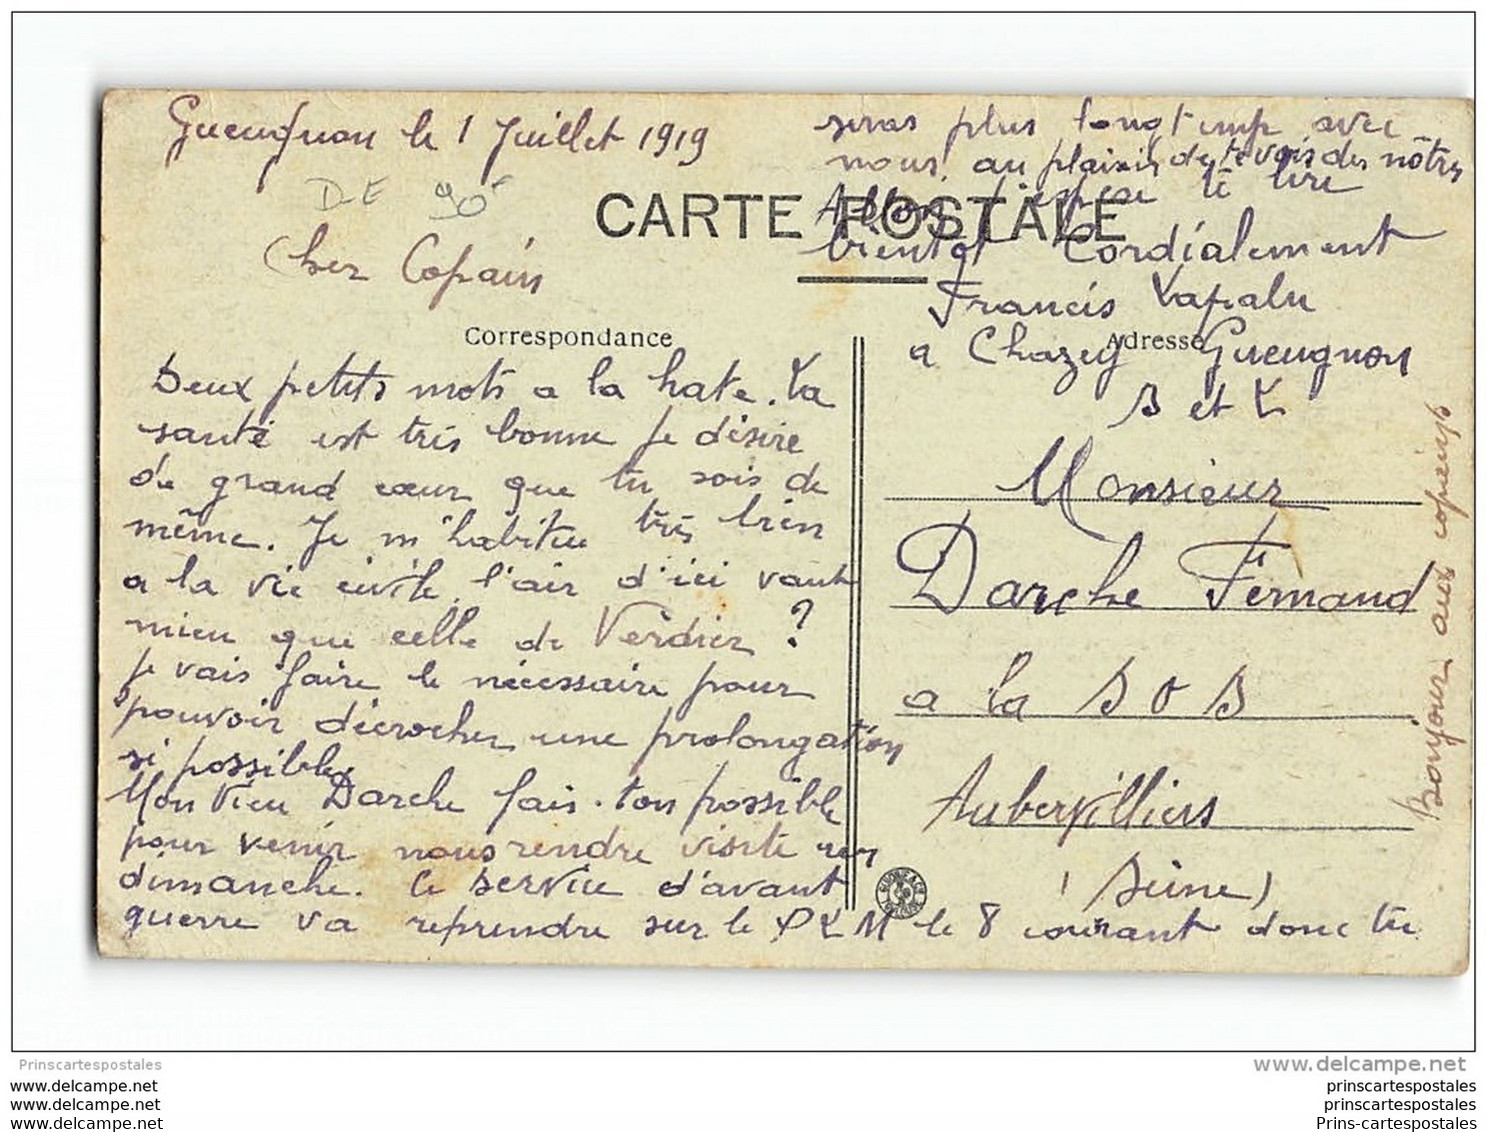 Gueugnon le 1 Juillet 1919
DE 90
Cher Copain
CARTE POSTALE
Correspondance
Deux petits mots a la hate. La
santé est très bonne je désire
de grand cœur que tu sois de
même. Je m'habitue très bien
a la vie civile l'air d'ici vaut
mieu que celle de Verdier ?
je vais faire le nécessaire pour
pouvoir décrocher une prolongation
si possible
Mon Vieu Darche fais ton possible
pour venir nous rendre visite un
dimanche. Ce service d'avant
guerre va reprendre sur le PLM le 8 courant donc tu
seras plus longtemp avec
nous au plaisir de te voir des nôtres
Allon j'espere te lire
bientot Cordialement
Francis Lapalu
a Chazey Gueugnon
S et L
Adresse
Monsieur
Darche Fernand
a la S O S
Aubervilliers
(Seine)
Bonjour aux copains
Prinscartespostales
www.delcampe.net
www.delcampe.net
www.delcampe.net
www.delcampe.net
prinscartespostales
prinscartespostales
Prins-cartespostales